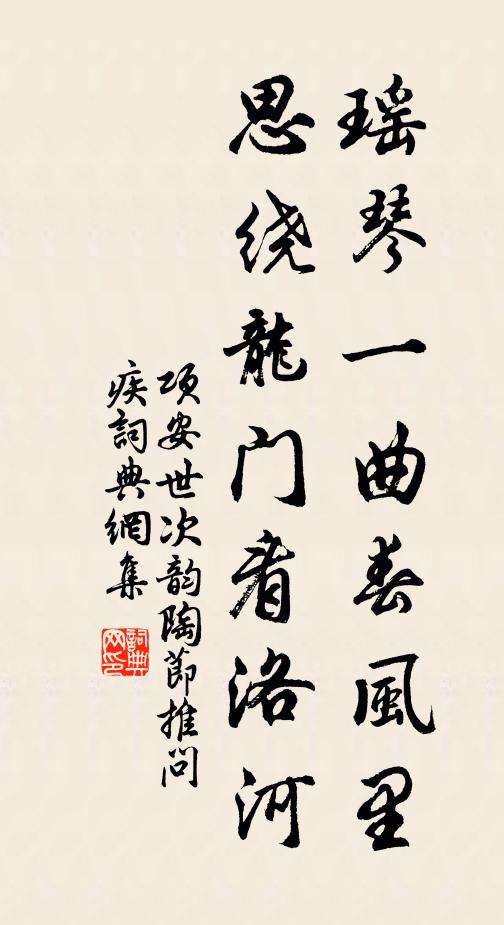 瑶琴一曲春風里
思绕龍门看洛河
项安世次韵陶節推问
疾詞典網集
詞典网印